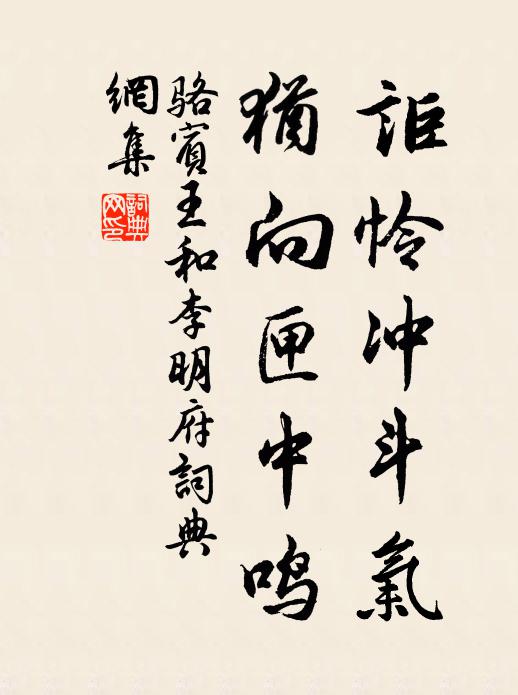 詎怜冲斗氣
猶向匣中鸣
骆賓王和李明府詞典
網集
詞典
网印